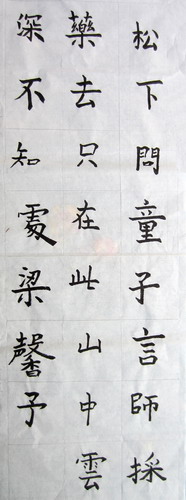 松下問童子言師採
藥去只在此山中雲
深不知處梁馨予